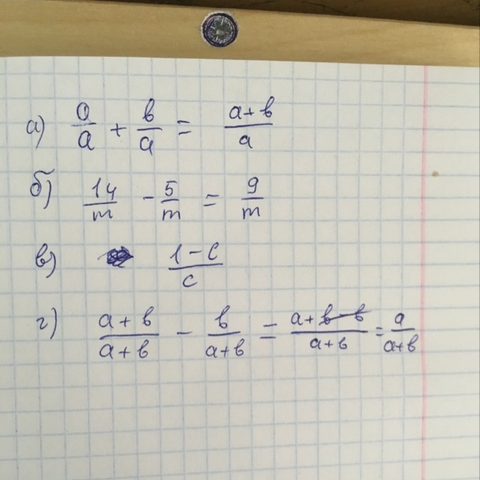 а) a/a + b/a = a+b/a
б) 14/m - 5/m = 9/m
в) 1-c/c
г) a+b/a+b - b/a+b = a+b-b/a+b = a/a+b